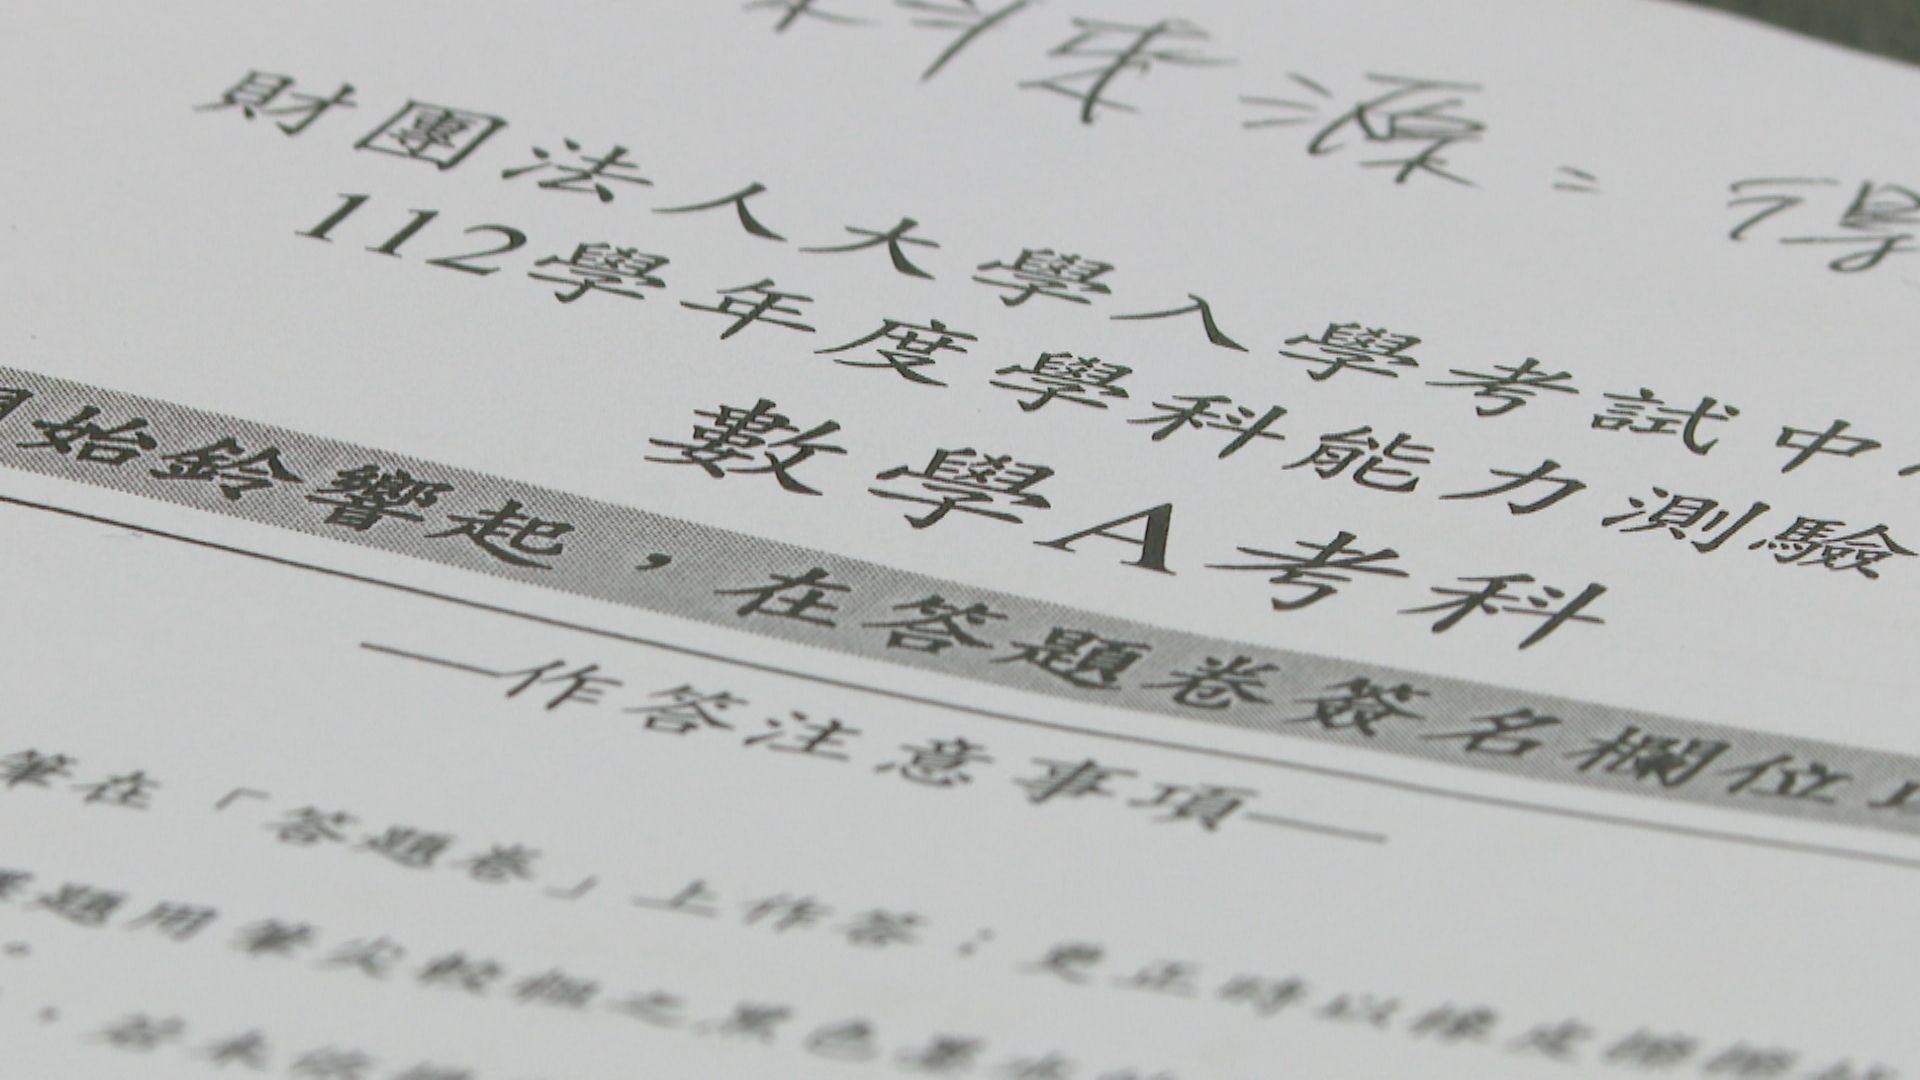 料來源：得
財團法人大學入學考試中
112學年度學科能力測驗
數學A考科
始鈴響起，在答題卷簽名欄位
—作答注意事項—
筆在「答題卷」上作答；更正時以橡皮擦擦
題用筆尖較粗之黑色墨水
。
，若未依